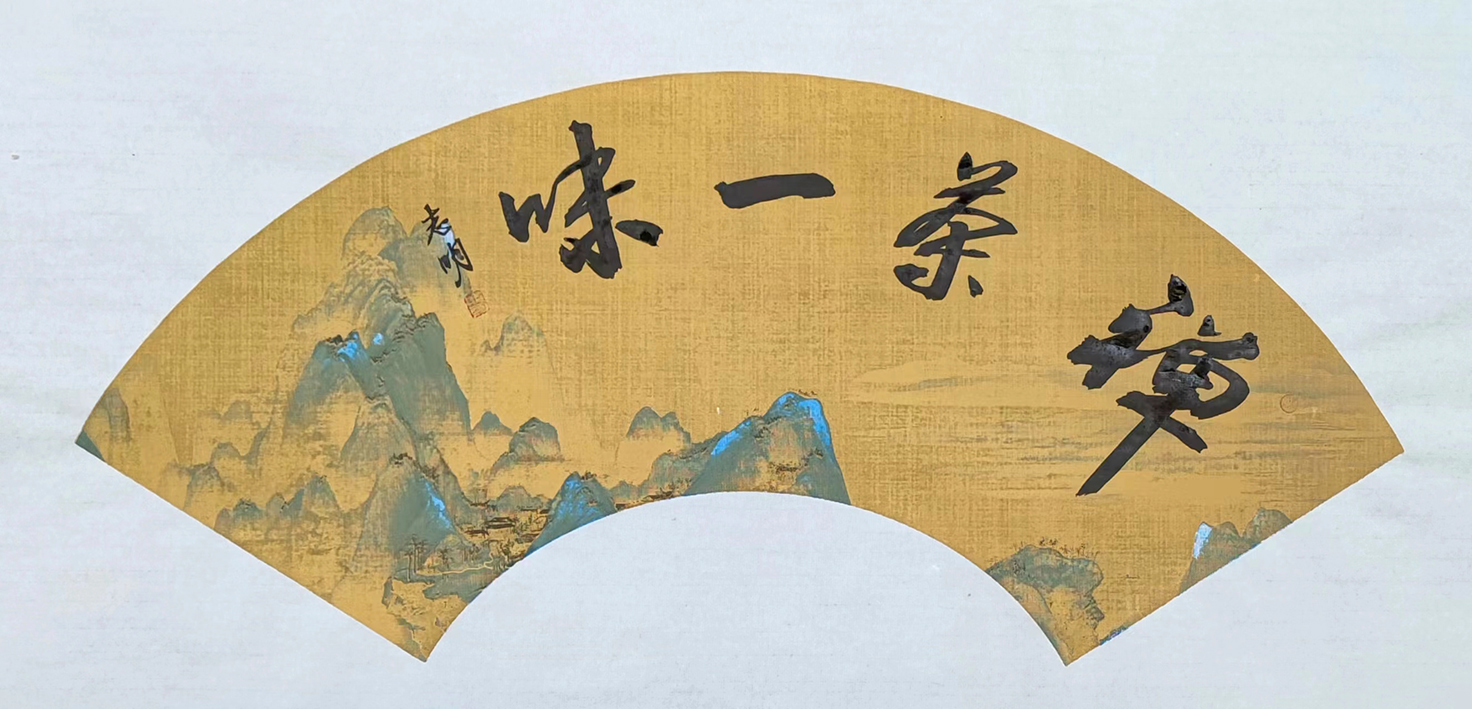 禅茶一味
志明